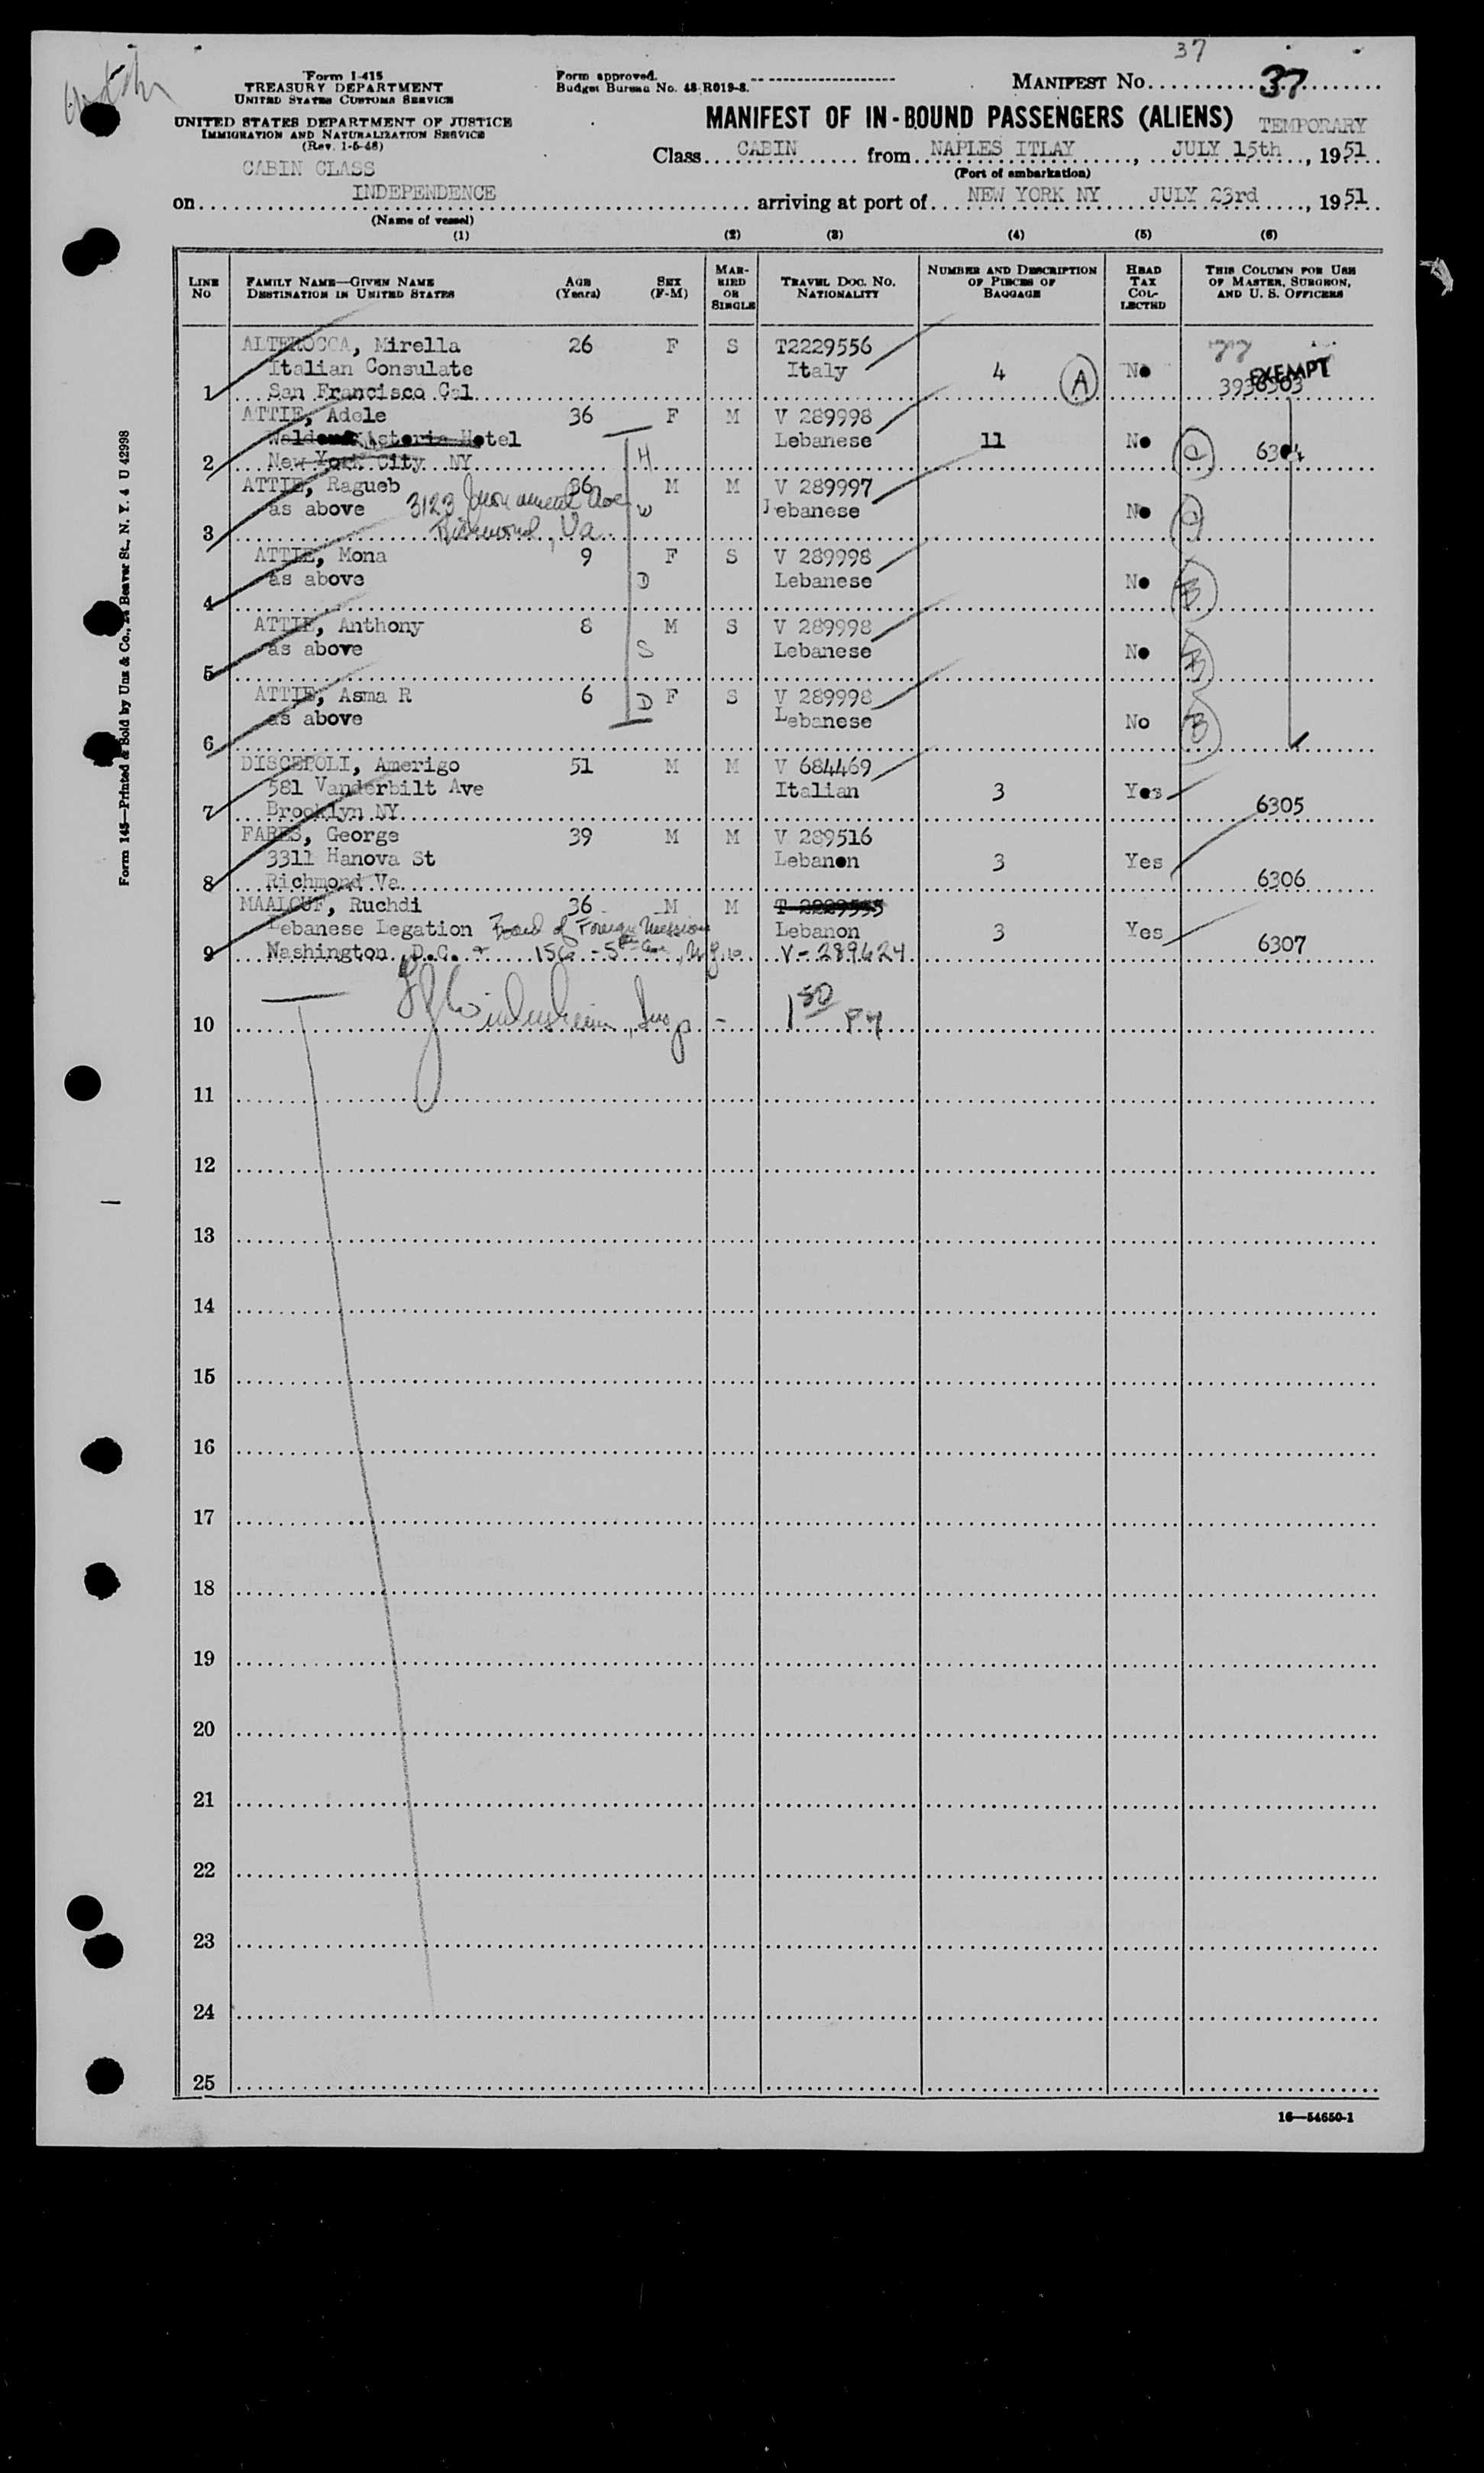 37
Form I-415
TREASURY DEPARTMENT
UNITED STATES CUSTOMS SERVICE
UNITED STATES DEPARTMENT OF JUSTICE
IMMIGRATION AND NATURALIZATION SERVICE
(Rev. 1-5-48)
Form approved.
Budget Bureau No. 43-R019-8.
MANIFEST No. 37
MANIFEST OF IN-BOUND PASSENGERS (ALIENS) TEMPORARY
Class CABIN from NAPLES ITLAY, JULY 15th, 1951
(Port of embarkation)
CABIN CLASS
on INDEPENDENCE arriving at port of NEW YORK NY JULY 23rd, 1951
(Name of vessel)
(1) (2) (3) (4) (5) (6)
LINE NO FAMILY NAME—GIVEN NAME DESTINATION IN UNITED STATES AGE (Years) SEX (F-M) MARRIED OR SINGLE TRAVEL DOC. NO. NATIONALITY NUMBER AND DESCRIPTION OF PIECES OF BAGGAGE HEAD TAX COLLECTED THIS COLUMN FOR USE OF MASTER, SURGEON, AND U. S. OFFICERS
ALTEROCCA, Mirella 26 F S T2229556 77
Italian Consulate Italy 4 A No EXEMPT
1 San Francisco Cal
ATTIE, Adele 36 F M V 289998
Astoria Hotel Lebanese 11 No 6304
2 New York City NY H
ATTIE, Ragueb 36 M M V 289997
as above 3123 Monument Ave W Lebanese No
3 Richmond, Va
ATTIE, Mona 9 F S V 289998
as above D Lebanese No B
4
ATTIE, Anthony 8 M S V 289998
as above S Lebanese No B
5
ATTIE, Asma R 6 D F S V 289998
as above Lebanese No B
6
DISCEPOLI, Amerigo 51 M M V 684469
581 Vanderbilt Ave Italian 3 Yes
7 Brooklyn NY 6305
FARES, George 39 M M V 289516
3311 Hanova St Lebanon 3 Yes
8 Richmond Va 6306
MAALOUF, Ruchdi 36 M M T 2229555
Lebanese Legation Board of Foreign Missions Lebanon 3 Yes
9 Washington D.C. 156 - 5th Ave, N.Y. 10 V-289624 6307
10 Insp - 1 50 PM
11
12
13
14
15
16
17
18
19
20
21
22
23
24
25
16—54650-1
Form 145—Printed & Sold by Unz & Co., 24 Beaver St., N. Y. 4 U 42998